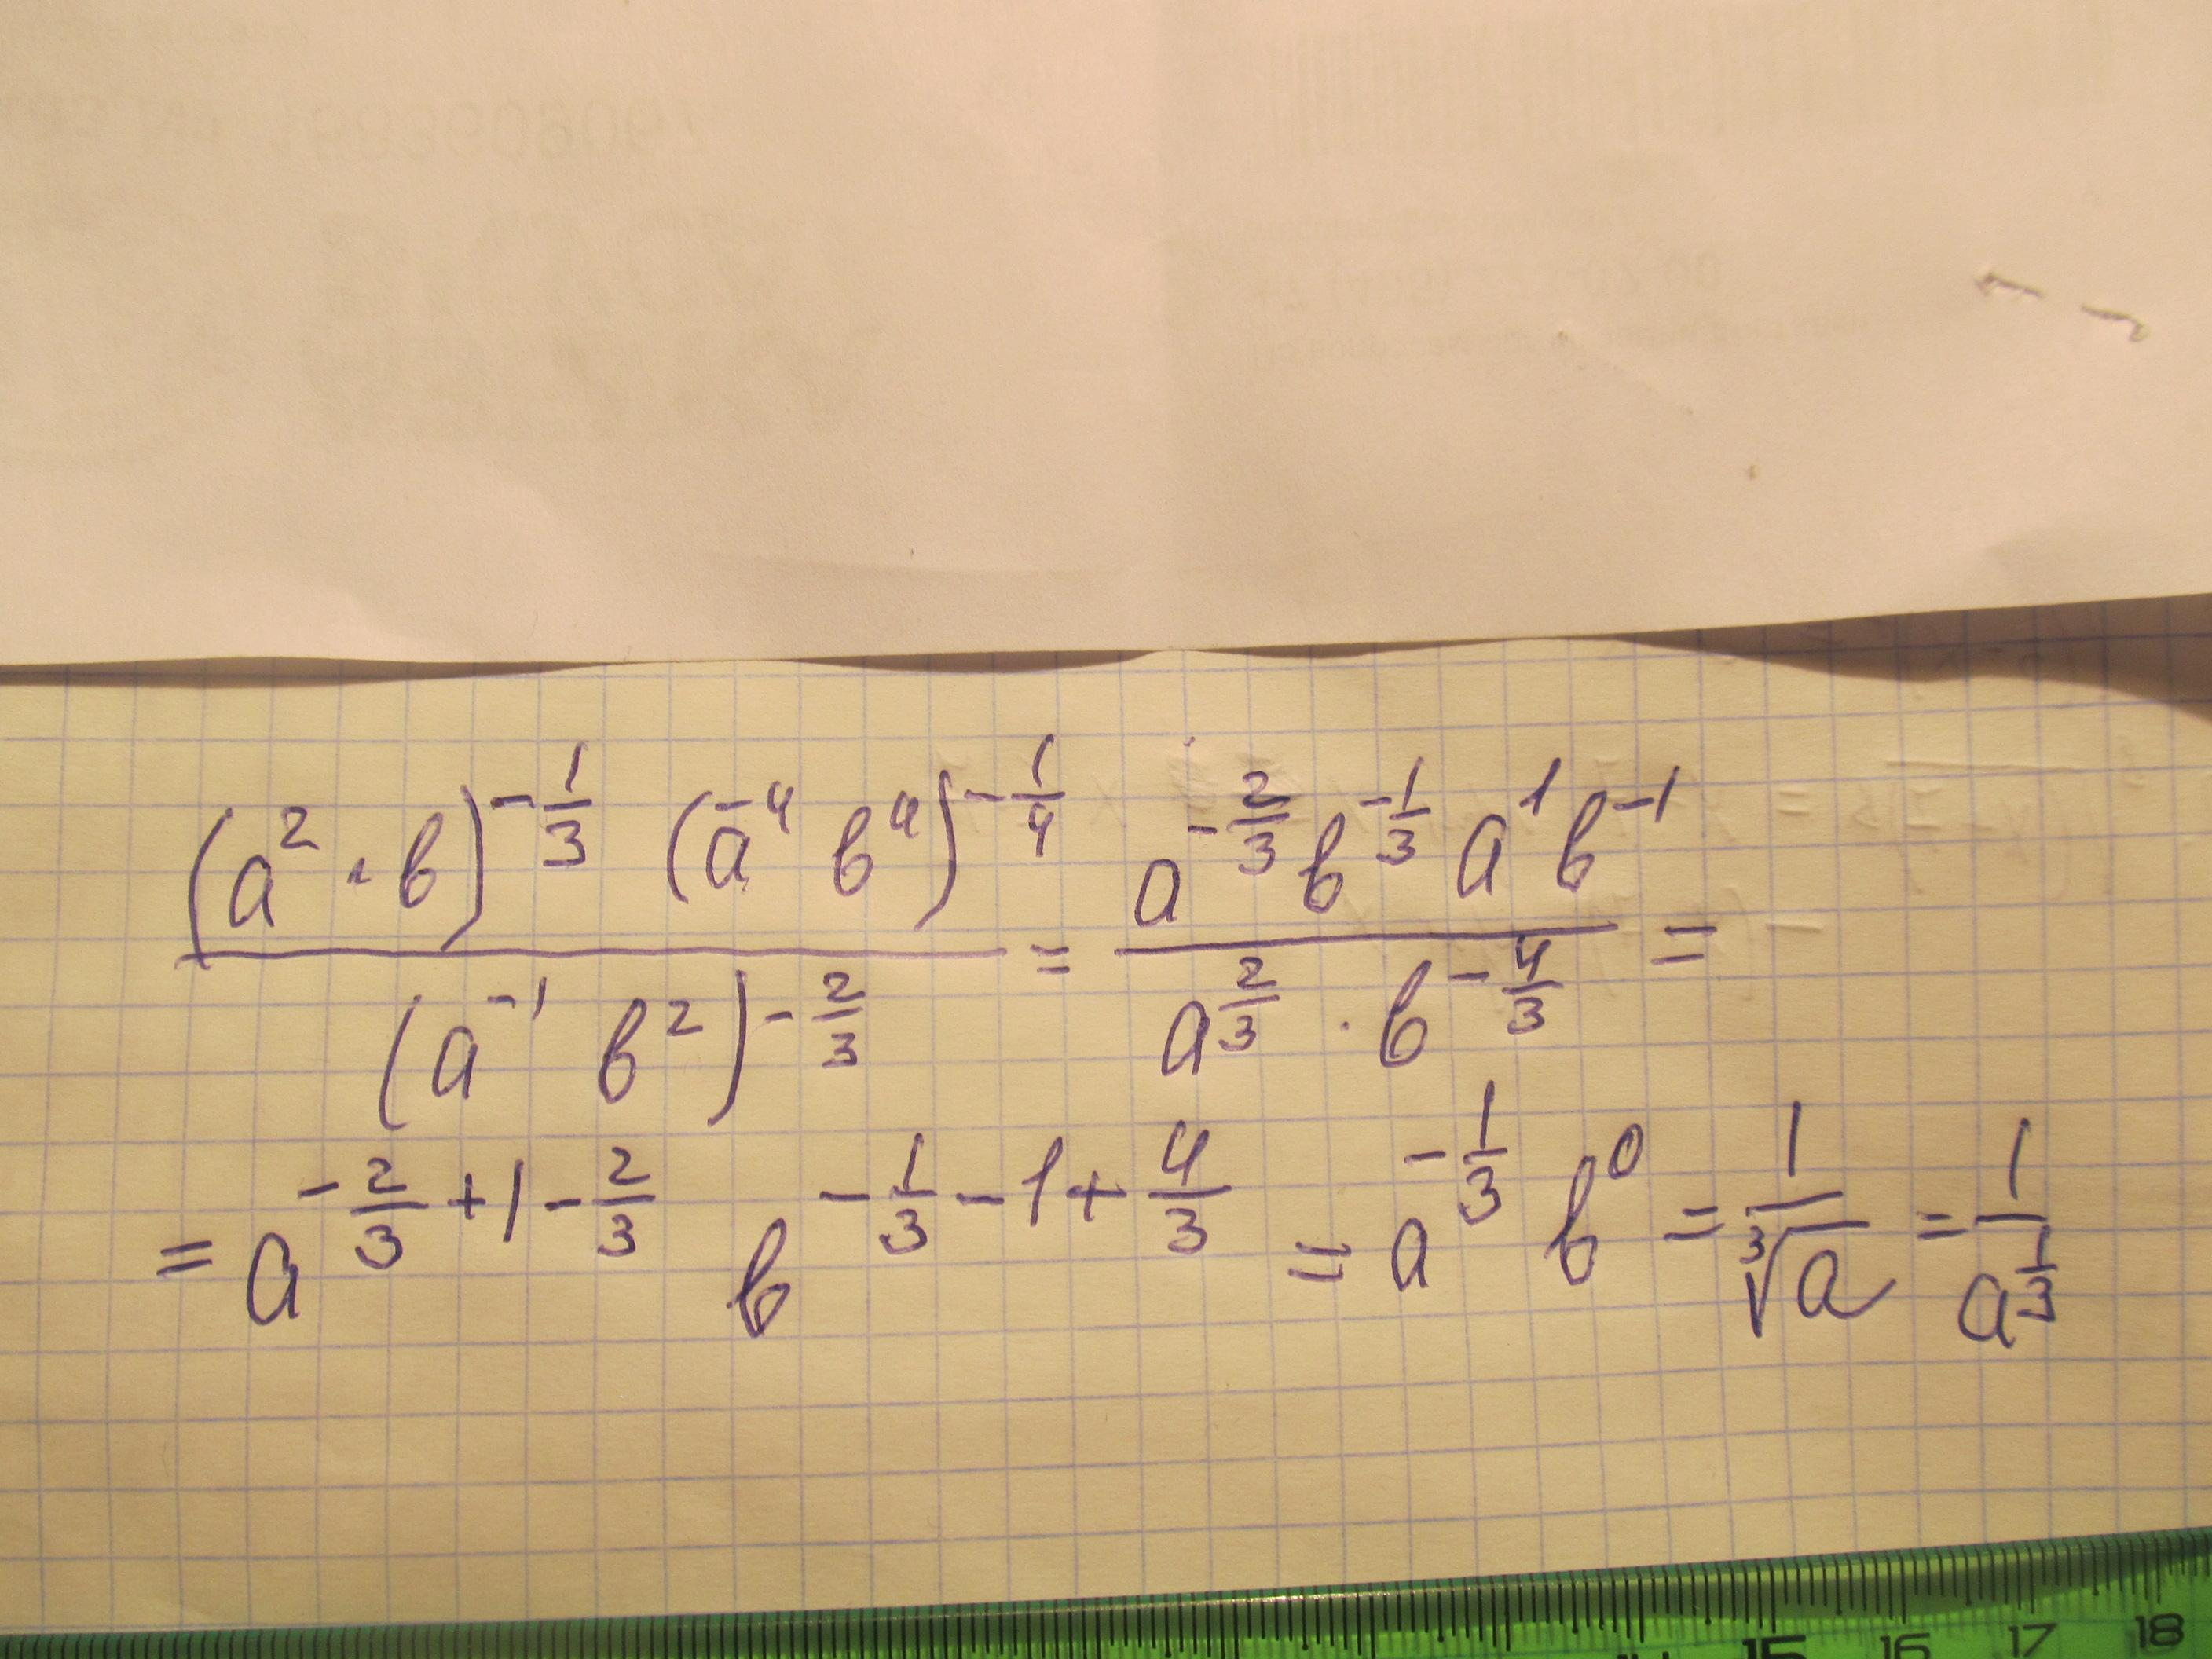 (a² · b)^(-1/3) (a⁻⁴ b⁴)^(-1/4) / (a⁻¹ b²)^(-2/3) = a^(-2/3) b^(-1/3) a¹ b⁻¹ / a^(2/3) · b^(-4/3) =
= a^(-2/3 + 1 - 2/3) b^(-1/3 - 1 + 4/3) = a^(-1/3) b⁰ = 1/∛a = 1/a^(1/3)
15 16 17 18